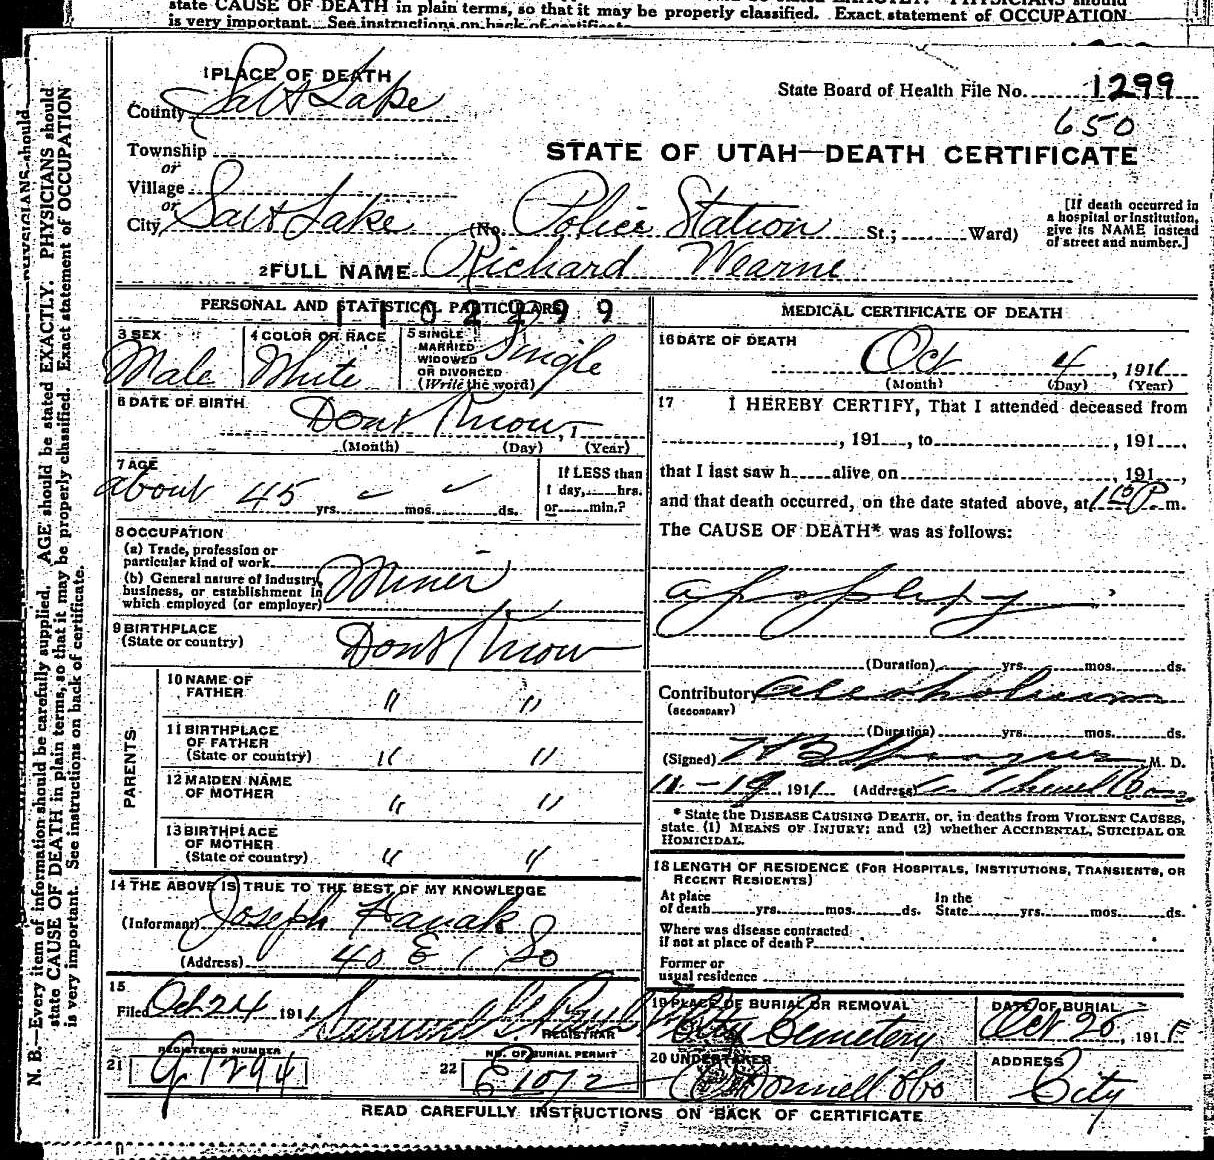 state CAUSE OF DEATH in plain terms, so that it may be properly classified. Exact statement of OCCUPATION
is very important. See instructions on back of certificate.
N. B.—Every item of information should be carefully supplied. AGE should be stated EXACTLY. PHYSICIANS should
state CAUSE OF DEATH in plain terms, so that it may be properly classified. Exact statement of OCCUPATION
is very important. See instructions on back of certificate.
1 PLACE OF DEATH
County Salt Lake
State Board of Health File No. 1299
650
Township
or
Village
or
City Salt Lake (No. Police Station St.; Ward)
STATE OF UTAH—DEATH CERTIFICATE
[If death occurred in
a hospital or institution,
give its NAME instead
of street and number.]
2 FULL NAME Richard Wearne
PERSONAL AND STATISTICAL PARTICULARS
3 SEX Male
4 COLOR OR RACE White
5 SINGLE
MARRIED
WIDOWED
OR DIVORCED
(Write the word) Single
6 DATE OF BIRTH Dont Know
(Month) (Day) (Year)
7 AGE about 45 yrs. mos. ds.
If LESS than
1 day, hrs.
or min.?
8 OCCUPATION
(a) Trade, profession or
particular kind of work
(b) General nature of industry,
business, or establishment in
which employed (or employer) Miner
9 BIRTHPLACE
(State or country) Dont Know
PARENTS
10 NAME OF
FATHER " "
11 BIRTHPLACE
OF FATHER
(State or country) " "
12 MAIDEN NAME
OF MOTHER " "
13 BIRTHPLACE
OF MOTHER
(State or country) " "
14 THE ABOVE IS TRUE TO THE BEST OF MY KNOWLEDGE
(Informant) Joseph Hanak
(Address) 40 E 1 So
15
Filed Oct 24 1911
REGISTRAR
21 REGISTERED NUMBER
22 NO. OF BURIAL PERMIT
MEDICAL CERTIFICATE OF DEATH
16 DATE OF DEATH
Oct 4, 1911
(Month) (Day) (Year)
17 I HEREBY CERTIFY, That I attended deceased from
, 191 , to , 191 ,
that I last saw h alive on , 191
and that death occurred, on the date stated above, at P. m.
The CAUSE OF DEATH* was as follows:
apoplexy
(Duration) yrs. mos. ds.
Contributory alcoholism
(SECONDARY)
(Duration) yrs. mos. ds.
(Signed) M. D.
191 (Address)
* State the DISEASE CAUSING DEATH, or, in deaths from VIOLENT CAUSES,
state (1) MEANS OF INJURY; and (2) whether ACCIDENTAL, SUICIDAL OR
HOMICIDAL.
18 LENGTH OF RESIDENCE (FOR HOSPITALS, INSTITUTIONS, TRANSIENTS, OR
RECENT RESIDENTS)
At place
of death yrs. mos. ds.
In the
State yrs. mos. ds.
Where was disease contracted
if not at place of death?
Former or
usual residence
19 PLACE OF BURIAL OR REMOVAL
City Cemetery
DATE OF BURIAL
Oct , 191
20 UNDERTAKER
O'Donnell &Co
ADDRESS
City
READ CAREFULLY INSTRUCTIONS ON BACK OF CERTIFICATE